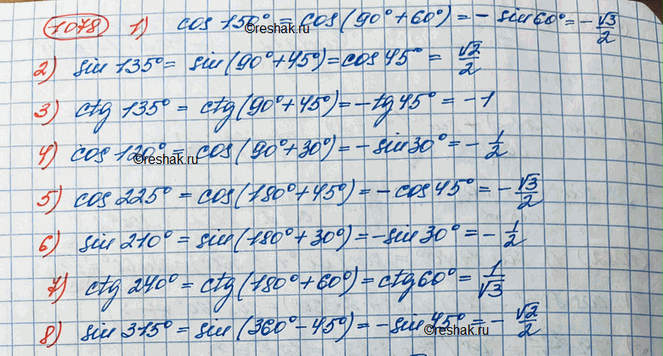 1078 1) cos 150° = cos(90°+60°) = - sin60° = - √3/2
2) sin 135° = sin(90°+45°) = cos 45° = √2/2
3) ctg 135° = ctg(90°+45°) = -tg 45° = -1
4) cos 120° = cos(90°+30°) = -sin30° = - 1/2
5) cos 225° = cos(180°+45°) = - cos 45° = - √3/2
6) sin 210° = sin(180°+30°) = -sin 30° = - 1/2
7) ctg 240° = ctg(180°+60°) = ctg 60° = 1/√3
8) sin 315° = sin(360°-45°) = -sin 45° = - √2/2
©reshak.ru
©reshak.ru
©reshak.ru